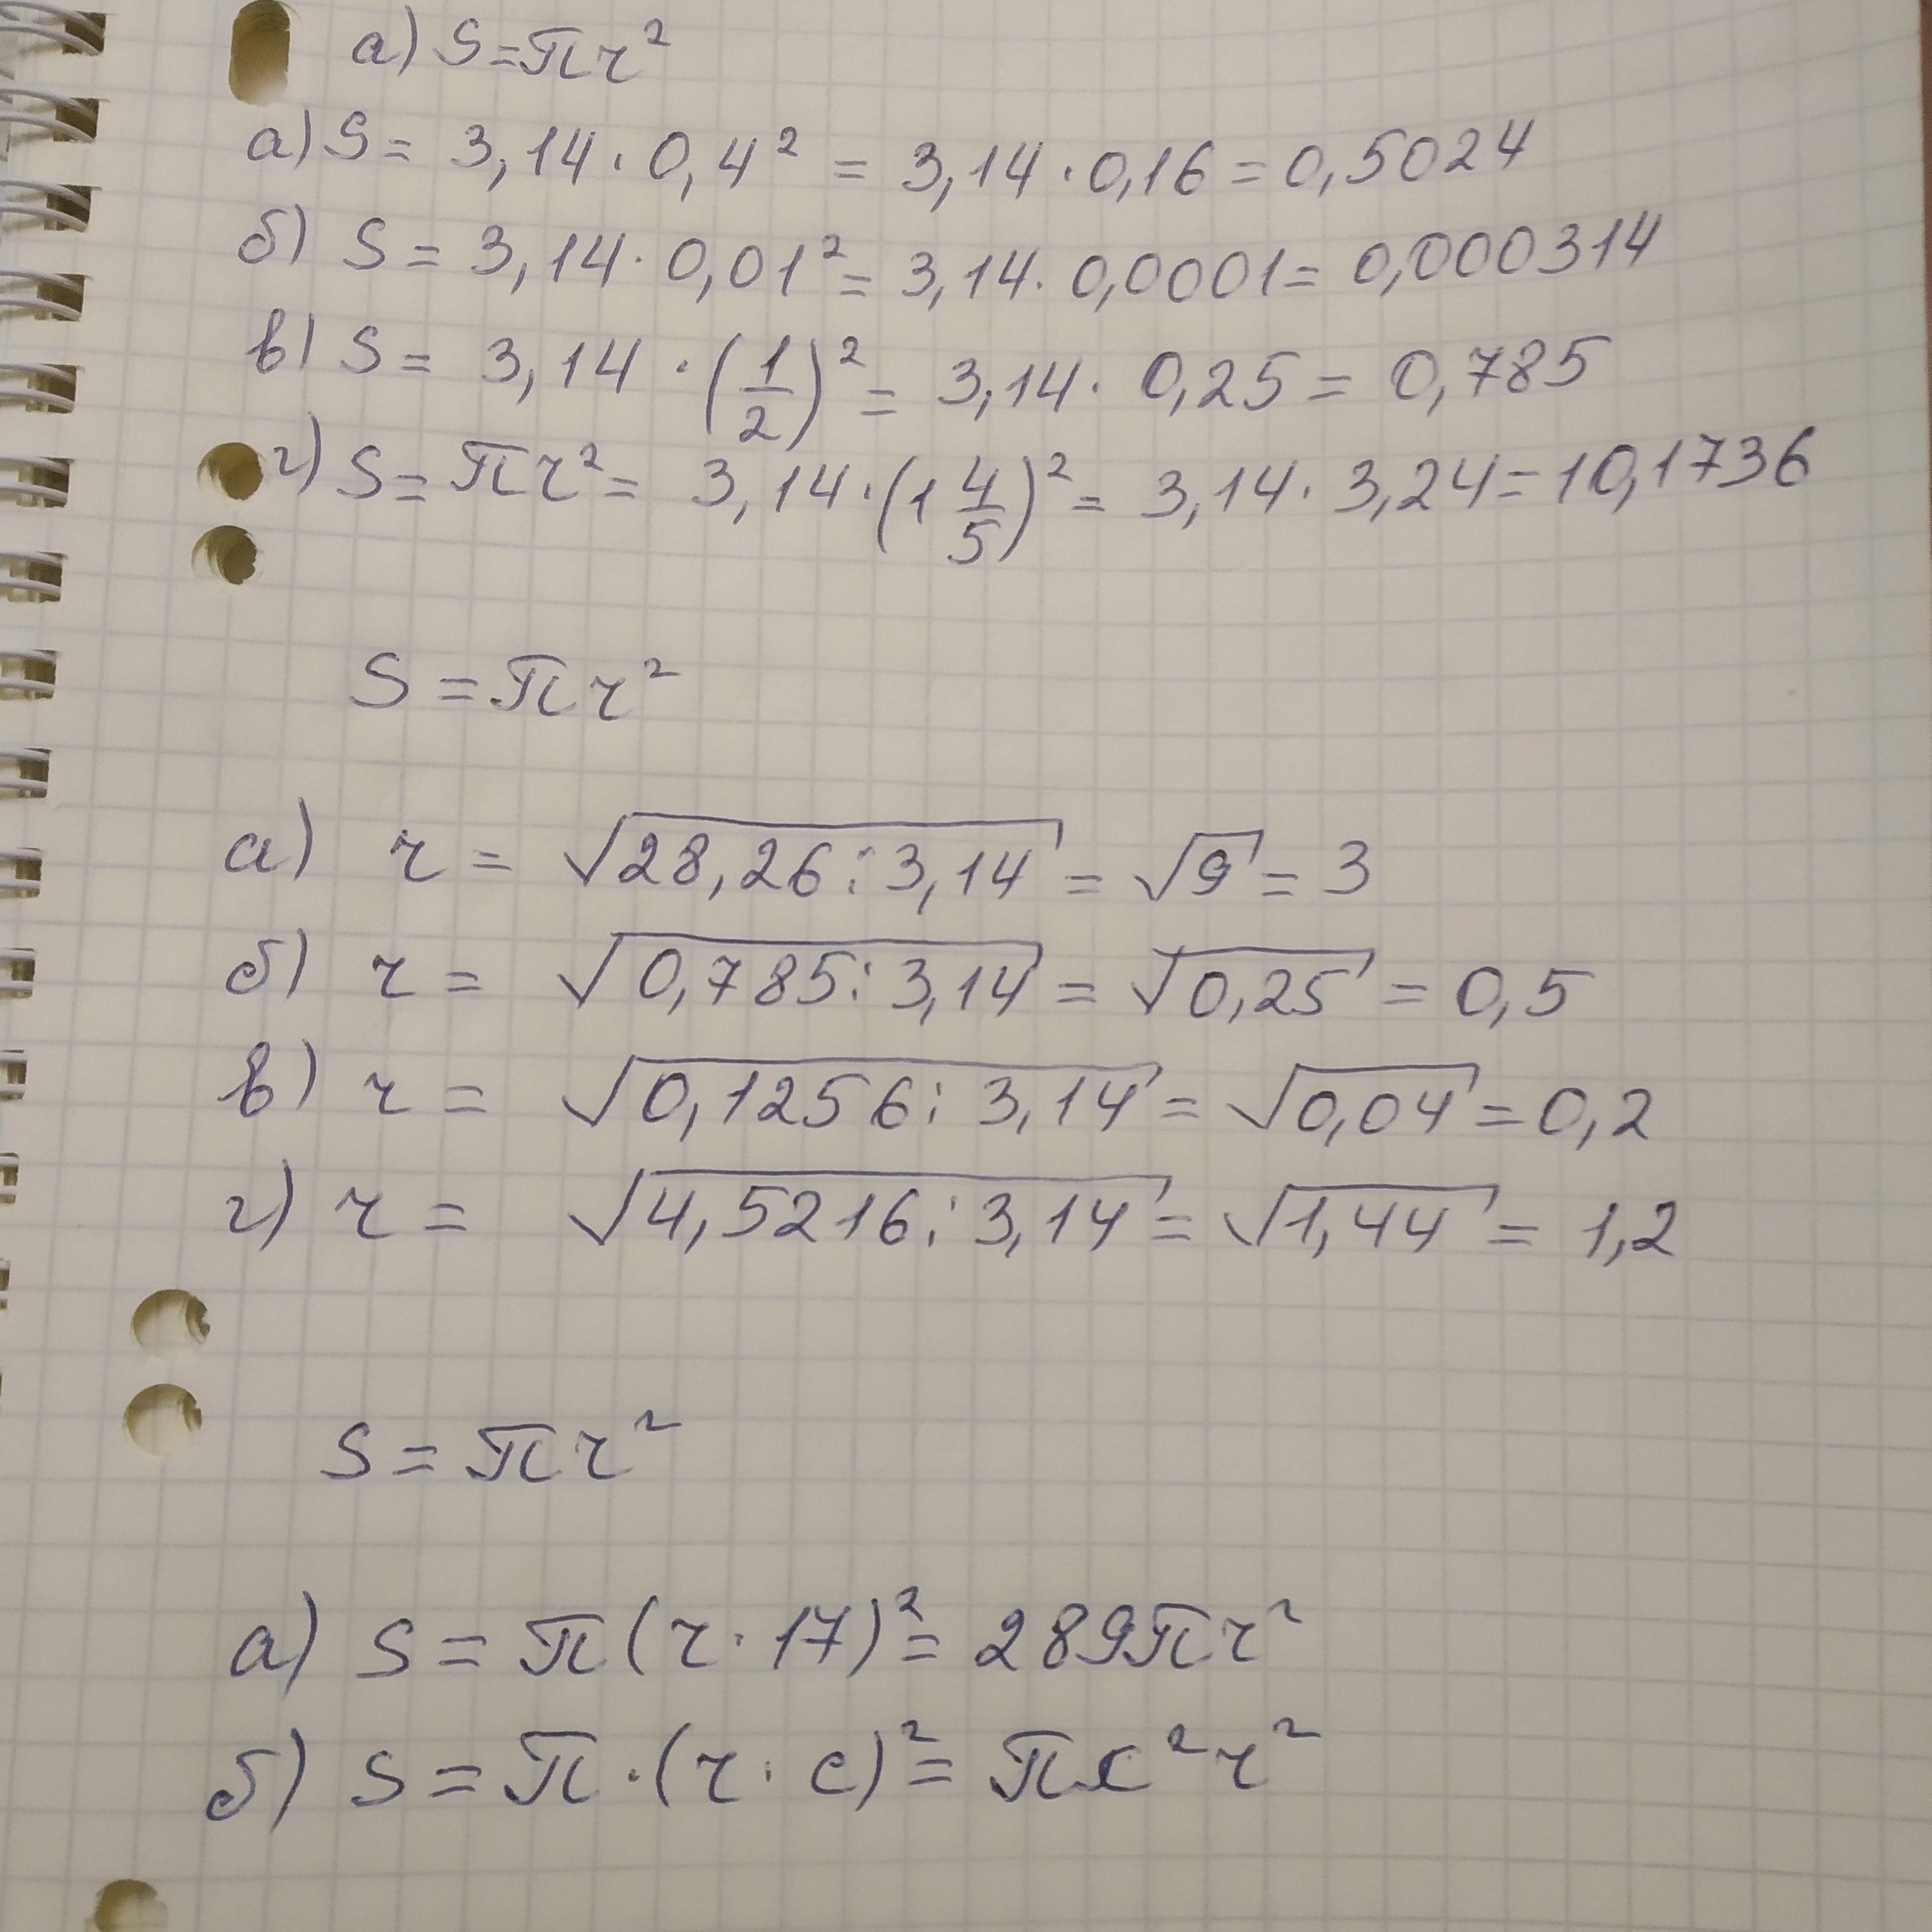 а) S=πr²
а) S= 3,14·0,4² = 3,14·0,16=0,5024
б) S= 3,14·0,01²= 3,14·0,0001= 0,000314
в) S= 3,14·(1/2)²= 3,14·0,25= 0,785
г) S= πr²= 3,14·(1 4/5)²= 3,14·3,24=10,1736
S=πr²
а) r= √28,26:3,14 = √9 = 3
б) r= √0,785:3,14 = √0,25 = 0,5
в) r= √0,1256:3,14 = √0,04 =0,2
г) r= √4,5216:3,14 = √1,44 = 1,2
S=πr²
а) S=π(r·17)²= 289πr²
б) S=π·(r·c)²= πc²r²